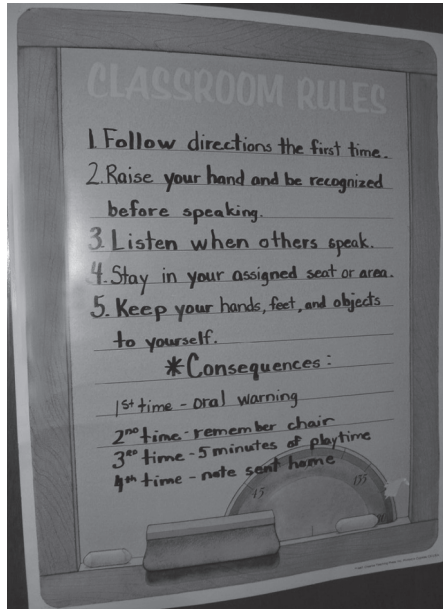 CLASSROOM RULES
1. Follow directions the first time.
2. Raise your hand and be recognized
before speaking.
3. Listen when others speak.
4. Stay in your assigned seat or area.
5. Keep your hands, feet, and objects
to yourself.
*Consequences:
1st time - oral warning
2nd time - remember chair
3rd time - 5 minutes of playtime
4th time - note sent home
15